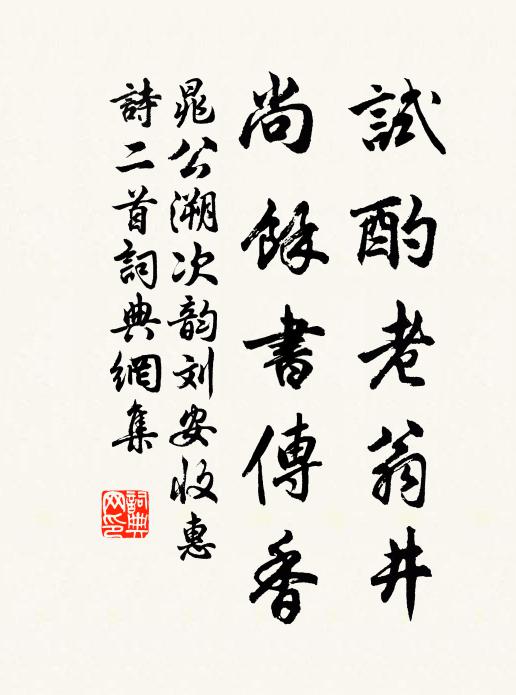 試酌老翁井
尚餘書傳香
晁公溯次韵刘安收惠
詩二首詞典網集
詞典
网印